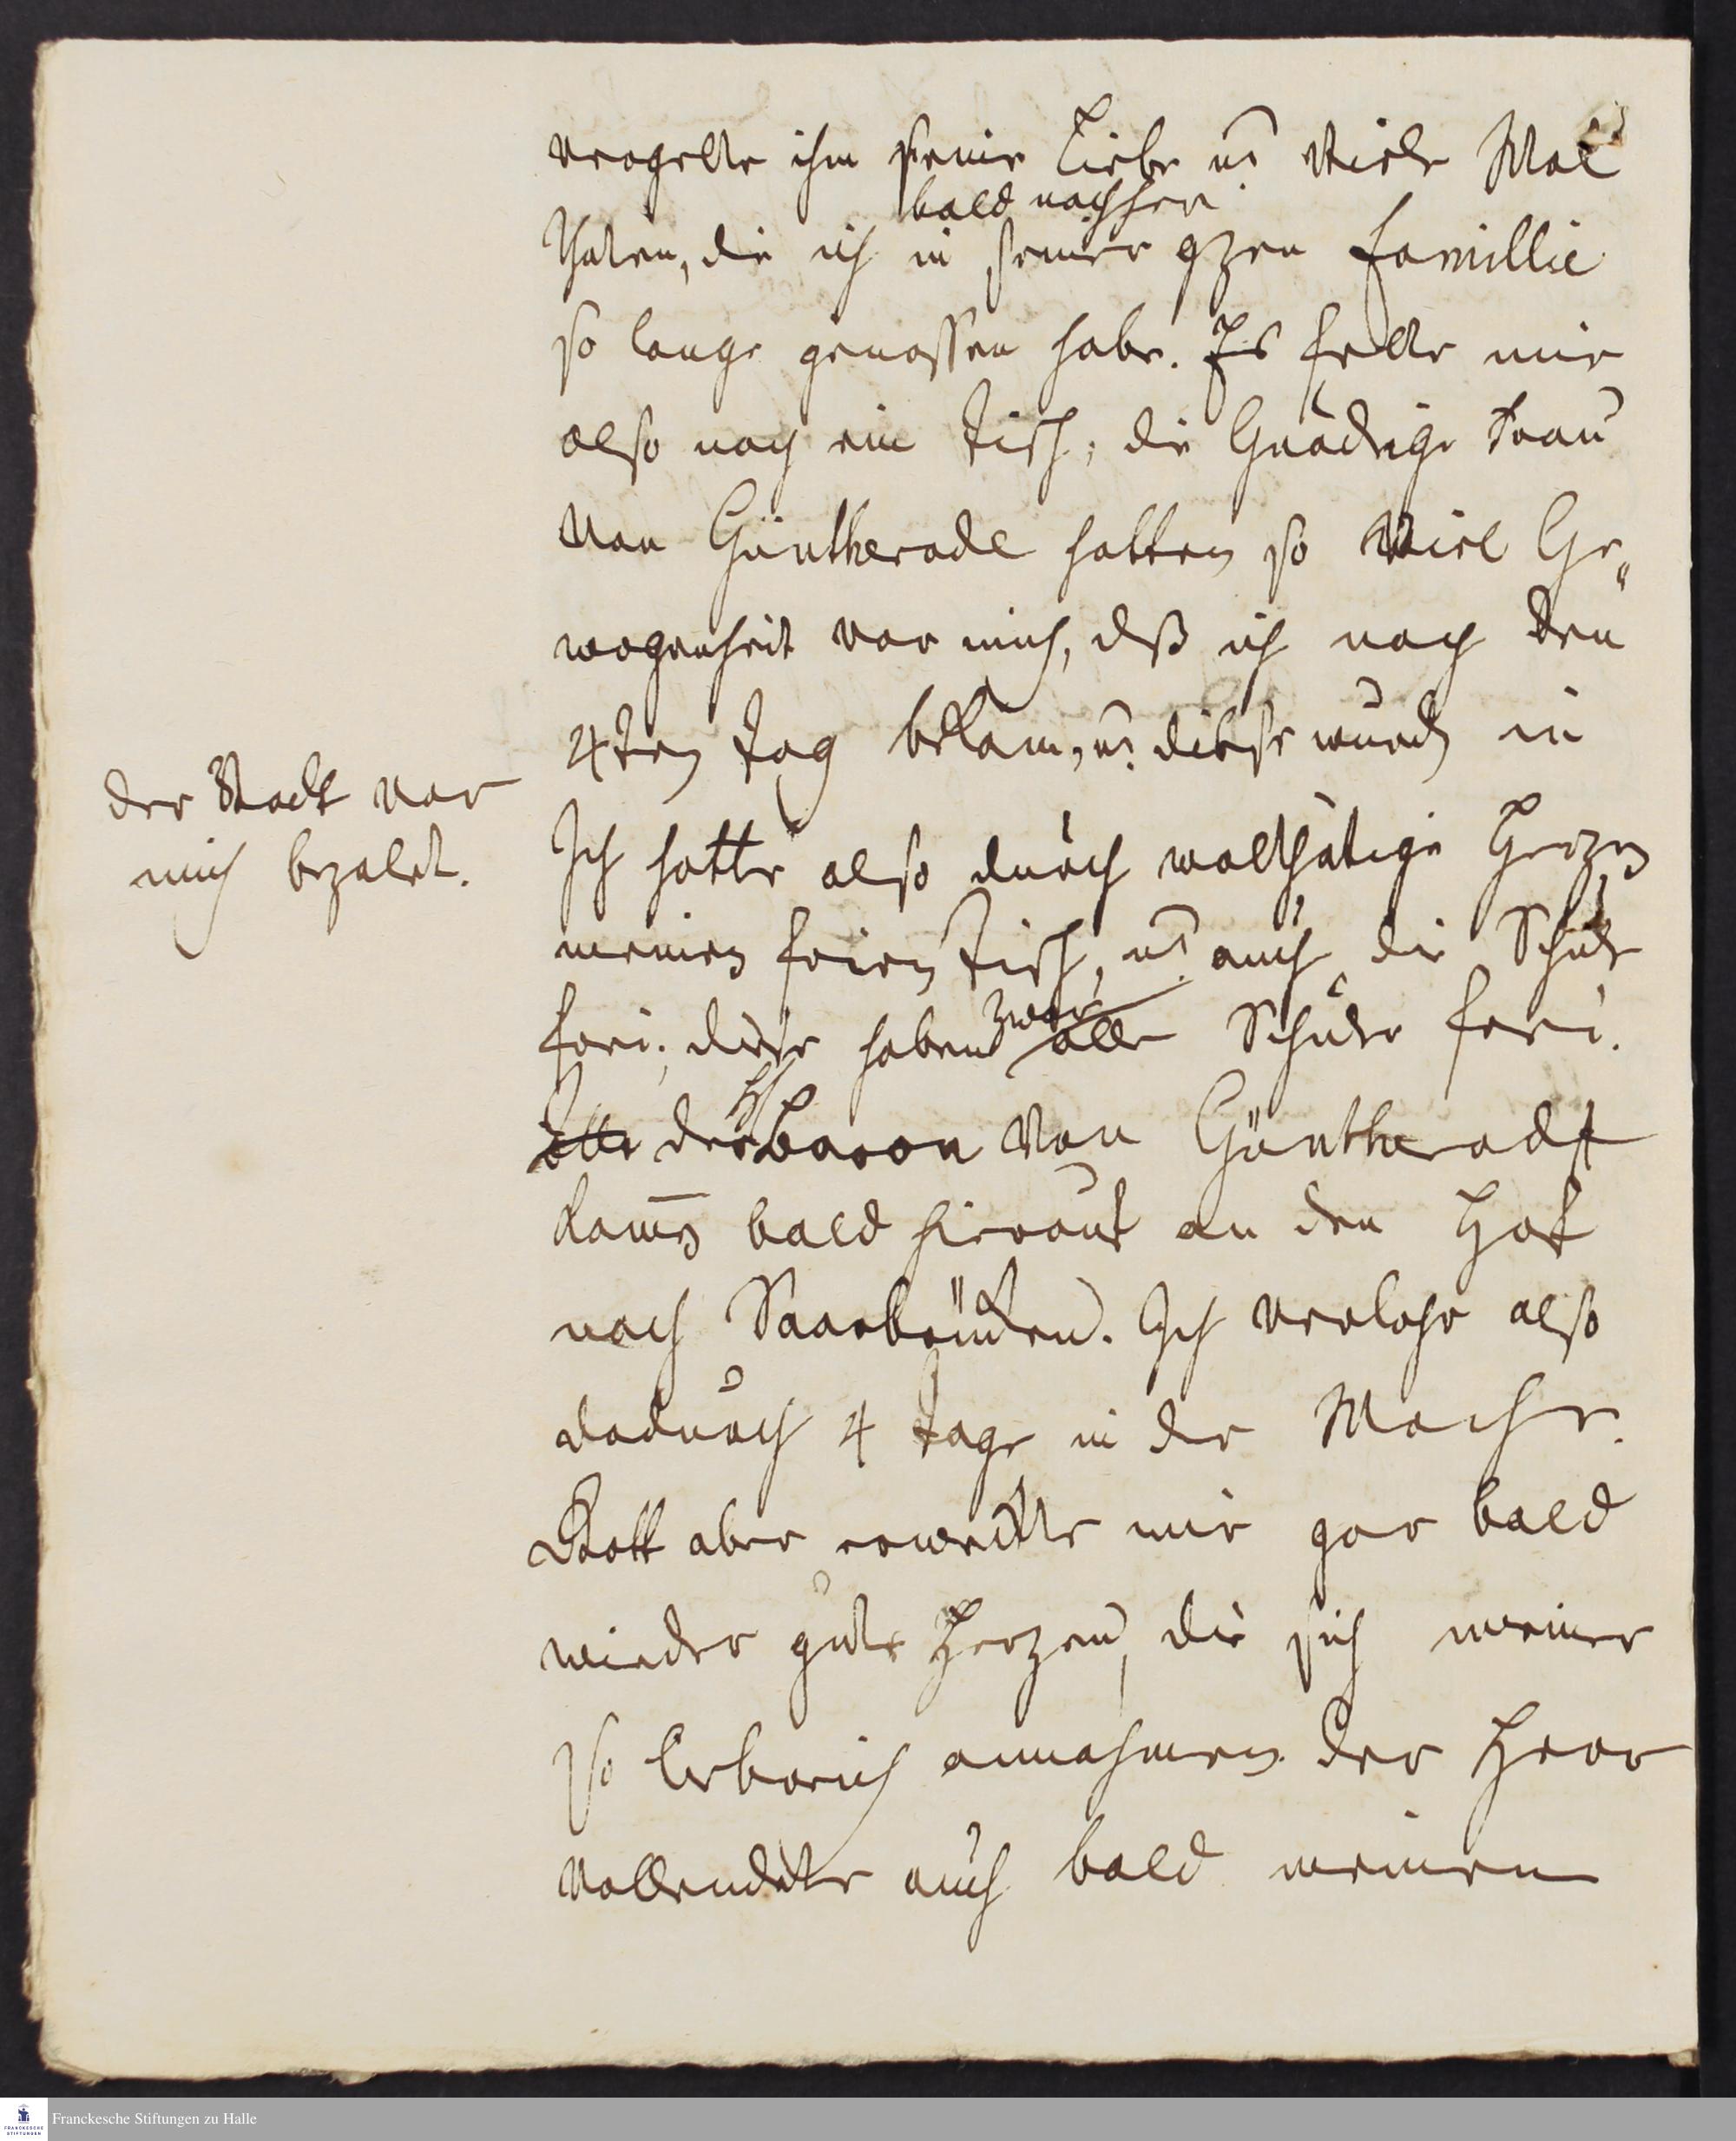 vergelte ihm seine Liebe u. viele Wol
bald nachher
thaten, die ich in seiner gzen Famillie
so lange genossen habe. Es fehlte mir
also noch ein Tisch; die Gnädige Frau
von Güntherode hatten so viel Ge„
wogenheit vor mich, dß ich noch den
4ten Tag bekam, u. dieser wurde in
der Stadt vor
mich bezalet.
Ich hatte also durch wolthätige Herzen
meinen freien Tisch, u. auch die Schule
frei; diese haben zwar alle Schüler frei.
alle der H Baron von Günterode
kamen bald hierauf an den Hof
nach Saarbrücken. Ich verlohr also
dadurch 4 Tage in der Woche.
Gott aber erweckte mir gar bald
wieder gute Herzen, die sich meiner
so liebreich annahmen. Der Herr
vollendete auch bald meinen
Franckesche Stiftungen zu Halle